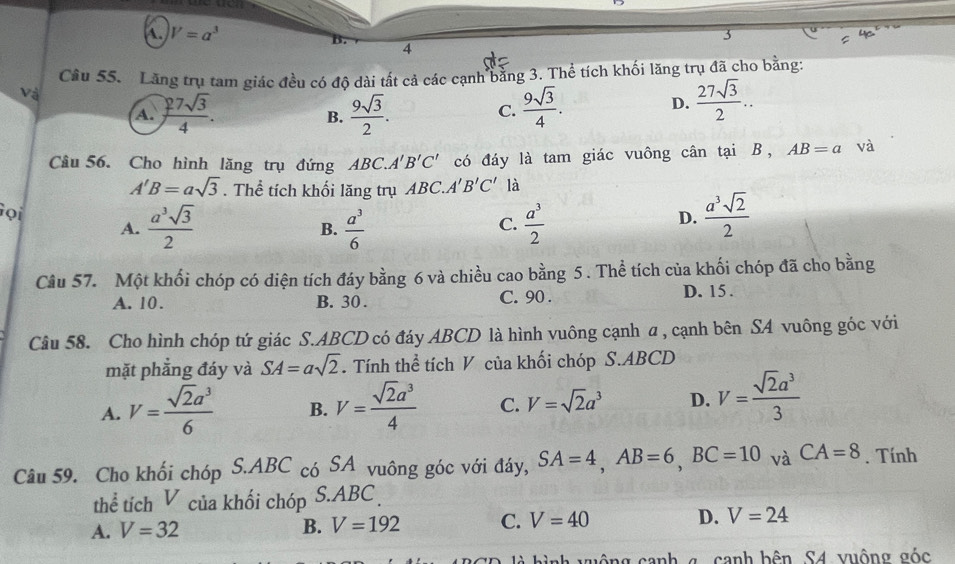 A. V = a³ B. 4 3 = 4a²
Câu 55. Lăng trụ tam giác đều có độ dài tất cả các cạnh bằng 3. Thể tích khối lăng trụ đã cho bằng:
Và
A. 27√3/4. B. 9√3/2. C. 9√3/4. D. 27√3/2..
Câu 56. Cho hình lăng trụ đứng ABC.A'B'C' có đáy là tam giác vuông cân tại B, AB = a và
A'B = a√3. Thể tích khối lăng trụ ABC.A'B'C' là
Gọi
A. a³√3/2 B. a³/6 C. a³/2 D. a³√2/2
Câu 57. Một khối chóp có diện tích đáy bằng 6 và chiều cao bằng 5. Thể tích của khối chóp đã cho bằng
A. 10. B. 30. C. 90. D. 15.
Câu 58. Cho hình chóp tứ giác S.ABCD có đáy ABCD là hình vuông cạnh a, cạnh bên SA vuông góc với
mặt phẳng đáy và SA = a√2. Tính thể tích V của khối chóp S.ABCD
A. V = √2a³/6 B. V = √2a³/4 C. V = √2a³ D. V = √2a³/3
Câu 59. Cho khối chóp S.ABC có SA vuông góc với đáy, SA = 4, AB = 6, BC = 10 và CA = 8. Tính
thể tích V của khối chóp S.ABC.
A. V = 32 B. V = 192 C. V = 40 D. V = 24
là hình vuông cạnh a, cạnh bên SA vuông góc